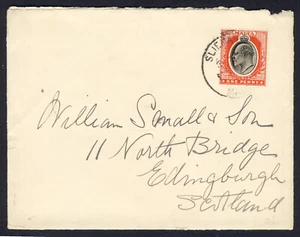 SLIE
ONE PENNY
William Small & Son
11 North Bridge
Edingburgh
Scotland